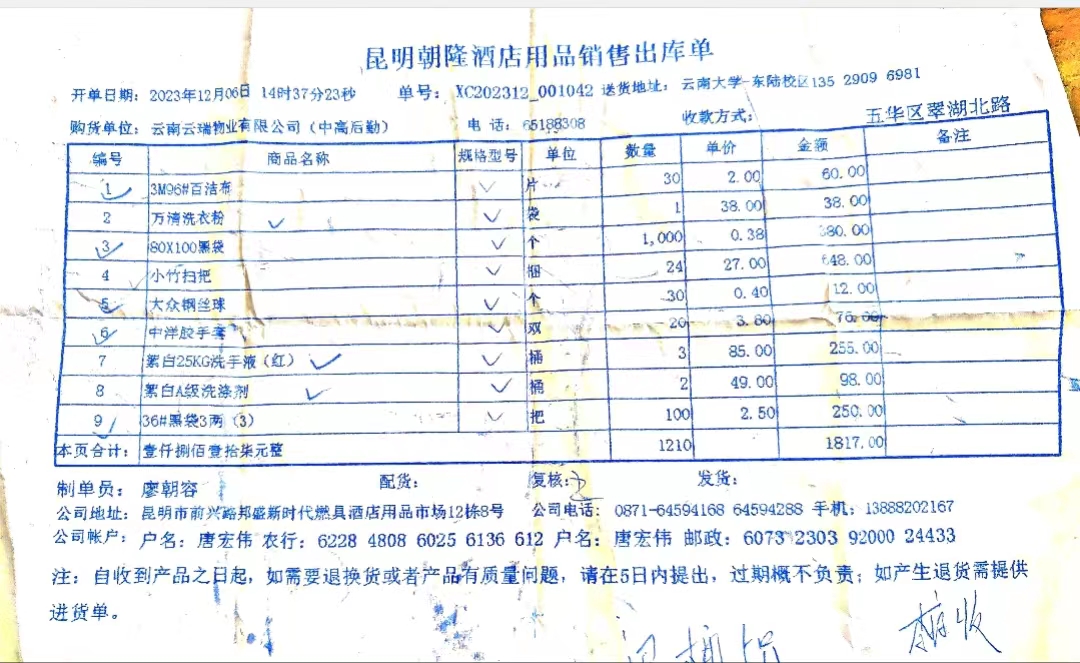 昆明朝隆酒店用品销售出库单
开单日期: 2023年12月06日 14时37分23秒 单号: XC202312_001042 送货地址: 云南大学-东陆校区135 2909 6981
购货单位: 云南云瑞物业有限公司(中高后勤) 电 话: 65188308 收款方式: 五华区翠湖北路
编号 商品名称 规格型号 单位 数量 单价 金额 备注
1 3M96#百洁布 片 30 2.00 60.00
2 万清洗衣粉 袋 1 38.00 38.00
3 80X100黑袋 个 1,000 0.38 380.00
4 小竹扫把 捆 24 27.00 648.00
5 大众钢丝球 个 30 0.40 12.00
6 中洋胶手套 双 20 3.80 76.00
7 絮白25KG洗手液(红) 桶 3 85.00 255.00
8 絮白A级洗涤剂 桶 2 49.00 98.00
9 36#黑袋3两(3) 把 100 2.50 250.00
本页合计: 壹仟捌佰壹拾柒元整 1210 1817.00
制单员: 廖朝容 配货: 复核: 发货:
公司地址: 昆明市前兴路邦盛新时代燃具酒店用品市场12栋8号 公司电话: 0871-64594168 64594288 手机: 13888202167
公司帐户: 户名: 唐宏伟 农行: 6228 4808 6025 6136 612 户名: 唐宏伟 邮政: 6073 2303 92000 24433
注: 自收到产品之日起, 如需要退换货或者产品有质量问题, 请在5日内提出, 过期概不负责; 如产生退货需提供
进货单。